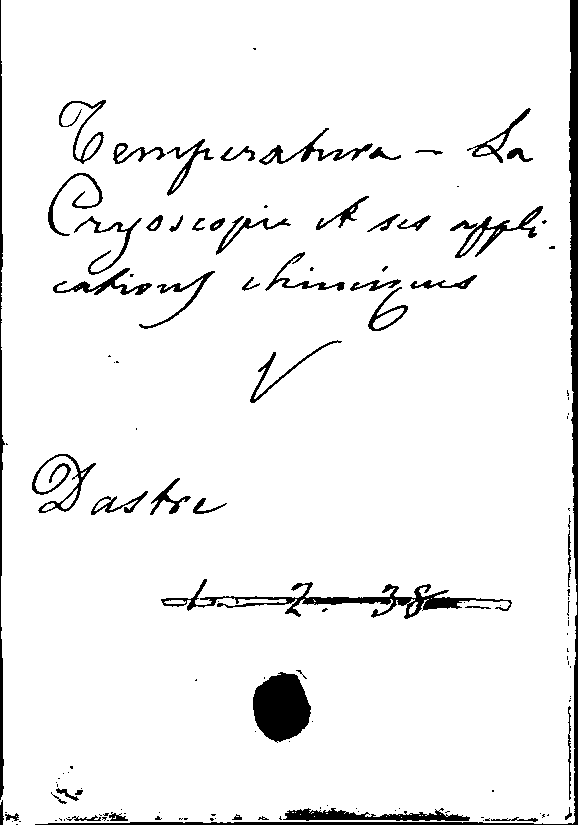 Temperatura - La
Cryoscopie et ses appli-
cations chimiques
V
Dastre
1. 2. 38